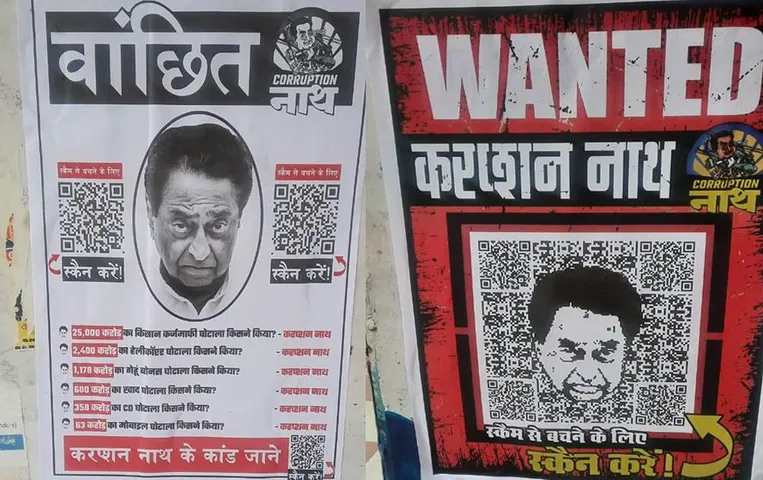 वांछित
CORRUPTION
नाथ
स्कैम से बचने के लिए
स्कैन करें!
स्कैम से बचने के लिए
स्कैन करें!
25,000 करोड़ का किसान कर्जमाफी घोटाला किसने किया? - करप्शन नाथ
2,400 करोड़ का हेलीकॉप्टर घोटाला किसने किया? - करप्शन नाथ
1,178 करोड़ का गेहूं बोनस घोटाला किसने किया? - करप्शन नाथ
600 करोड़ का खाद घोटाला किसने किया? - करप्शन नाथ
350 करोड़ का CD घोटाला किसने किया? - करप्शन नाथ
63 करोड़ का मोबाइल घोटाला किसने किया? - करप्शन नाथ
करप्शन नाथ के कांड जाने
WANTED
करप्शन नाथ
CORRUPTION
नाथ
स्कैम से बचने के लिए
स्कैन करें!